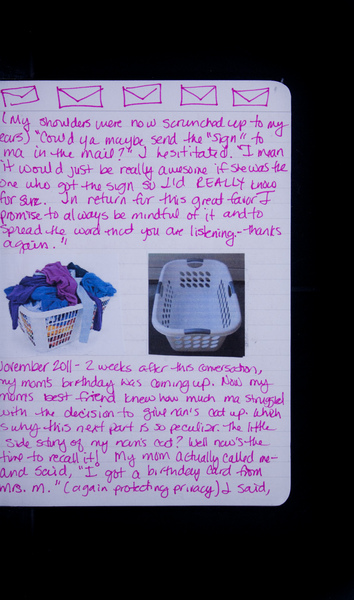 (My shoulders were now scrunched up to my
ears) "Could ya maybe send the "sign" to
ma in the mail?" I hesititated. "I mean
it would just be really awesome if she was the
one who got the sign so I'd REALLY know
for sure. In return for this great favor I
promise to always be mindful of it and to
spread the word that you are listening.-thanks
again."
November 2011- 2 weeks after this conversation,
my mom's birthday was coming up. Now my
mom's best friend knew how much ma struggled
with the decision to give nan's cat up. which
is why this next part is so peculior. the little
side story of my nan's cat? Well now's the
time to recall it! My mom actually called me-
and said, "I got a birthday card from
Mrs. M." (again protecting privacy) I said,